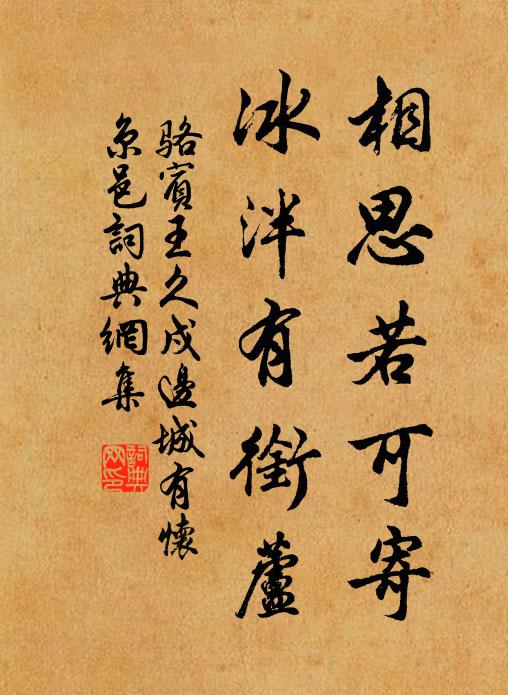 相思若可寄
冰泮有銜蘆
駱賓王久戍邊城有懷
京邑詞典網集
詞典
网印